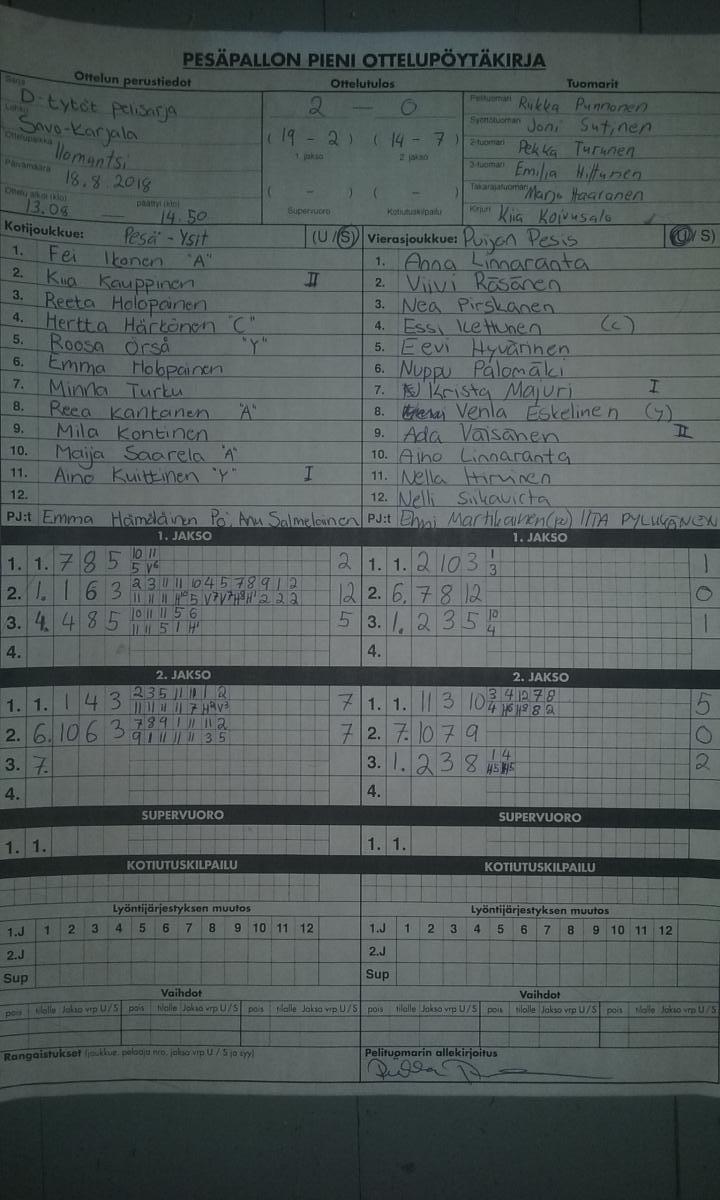 PESÄPALLON PIENI OTTELUPÖYTÄKIRJA
Ottelun perustiedot
Sarja D-tytöt pelisarja
Lohko Savo-Karjala
Ottelupaikka Ilomantsi
Päivämäärä 18.8.2018
Ottelu alkoi (klo) 13.08 — päättyi (klo) 14.50
Ottelutulos
2 — 0
( 19 - 2 ) ( 14 - 7 )
1. jakso 2. jakso
( - ) ( - )
Supervuoro Kotiutuskilpailu
Tuomarit
Pelituomari Riikka Punnonen
Syöttötuomari Joni Sutinen
2-tuomari Pekka Turunen
3-tuomari Emilia Hiltunen
Takarajatuomari Marju Haaranen
Kirjuri Kiia Koivusalo
Kotijoukkue: Pesä-Ysit (U/S)
1. Fei Ikonen "A"
2. Kiia Kauppinen II
3. Reeta Holopainen
4. Hertta Härkönen "C"
5. Roosa Örså "Y"
6. Emma Holopainen
7. Minna Turku
8. Reea Kantanen "A"
9. Mila Kontinen
10. Maija Saarela "A"
11. Aino Kuittinen "Y" I
12.
PJ:t Emma Hämäläinen Pö, Anu Salmelainen
Vierasjoukkue: Puijon Pesis (U/S)
1. Anna Linnaranta
2. Viivi Räsänen
3. Nea Pirskanen
4. Essi Kettunen (c)
5. Eevi Hyvärinen
6. Nuppu Palomäki
7. Krista Majuri I
8. Venla Eskelinen (y)
9. Ada Väisänen II
10. Aino Linnaranta
11. Nella Hirvinen
12. Nelli Siikavirta
PJ:t Elmi Martikainen(pj) IITA PYLVKÄNEN
1. JAKSO
1. 1. 7 8 5 10 11 2
5 V6
2. 1. 1 6 3 2 3 11 11 10 4 5 7 8 9 1 2 12
3. 4. 4 8 5 10 11 11 5 6 5
11 11 5 1 H1
4.
1. JAKSO
1. 1. 2 10 3 1 1
3
2. 6. 7 8 12 0
3. 1. 2 3 5 10 1
4
4.
2. JAKSO
1. 1. 1 4 3 2 3 5 11 11 1 2 7
2. 6. 10 6 3 7 8 9 1 11 11 2 7
9 1 11 11 11 3 5
3. 7.
4.
2. JAKSO
1. 1. 11 3 10 3 4 12 7 8 5
4 H6 H8 8 2
2. 7. 10 7 9 0
3. 1. 2 3 8 1 4 2
H5 H5
4.
SUPERVUORO
1. 1.
SUPERVUORO
1. 1.
KOTIUTUSKILPAILU
KOTIUTUSKILPAILU
Lyöntijärjestyksen muutos
1.J 1 2 3 4 5 6 7 8 9 10 11 12
2.J
Sup
Lyöntijärjestyksen muutos
1.J 1 2 3 4 5 6 7 8 9 10 11 12
2.J
Sup
Vaihdot
pois tilalle Jakso vrp U/S pois tilalle Jakso vrp U/S pois tilalle Jakso vrp U/S
Vaihdot
pois tilalle Jakso vrp U/S pois tilalle Jakso vrp U/S pois tilalle Jakso vrp U/S
Rangaistukset (joukkue, pelaaja nro, jakso vrp U / S ja syy)
Pelituomarin allekirjoitus